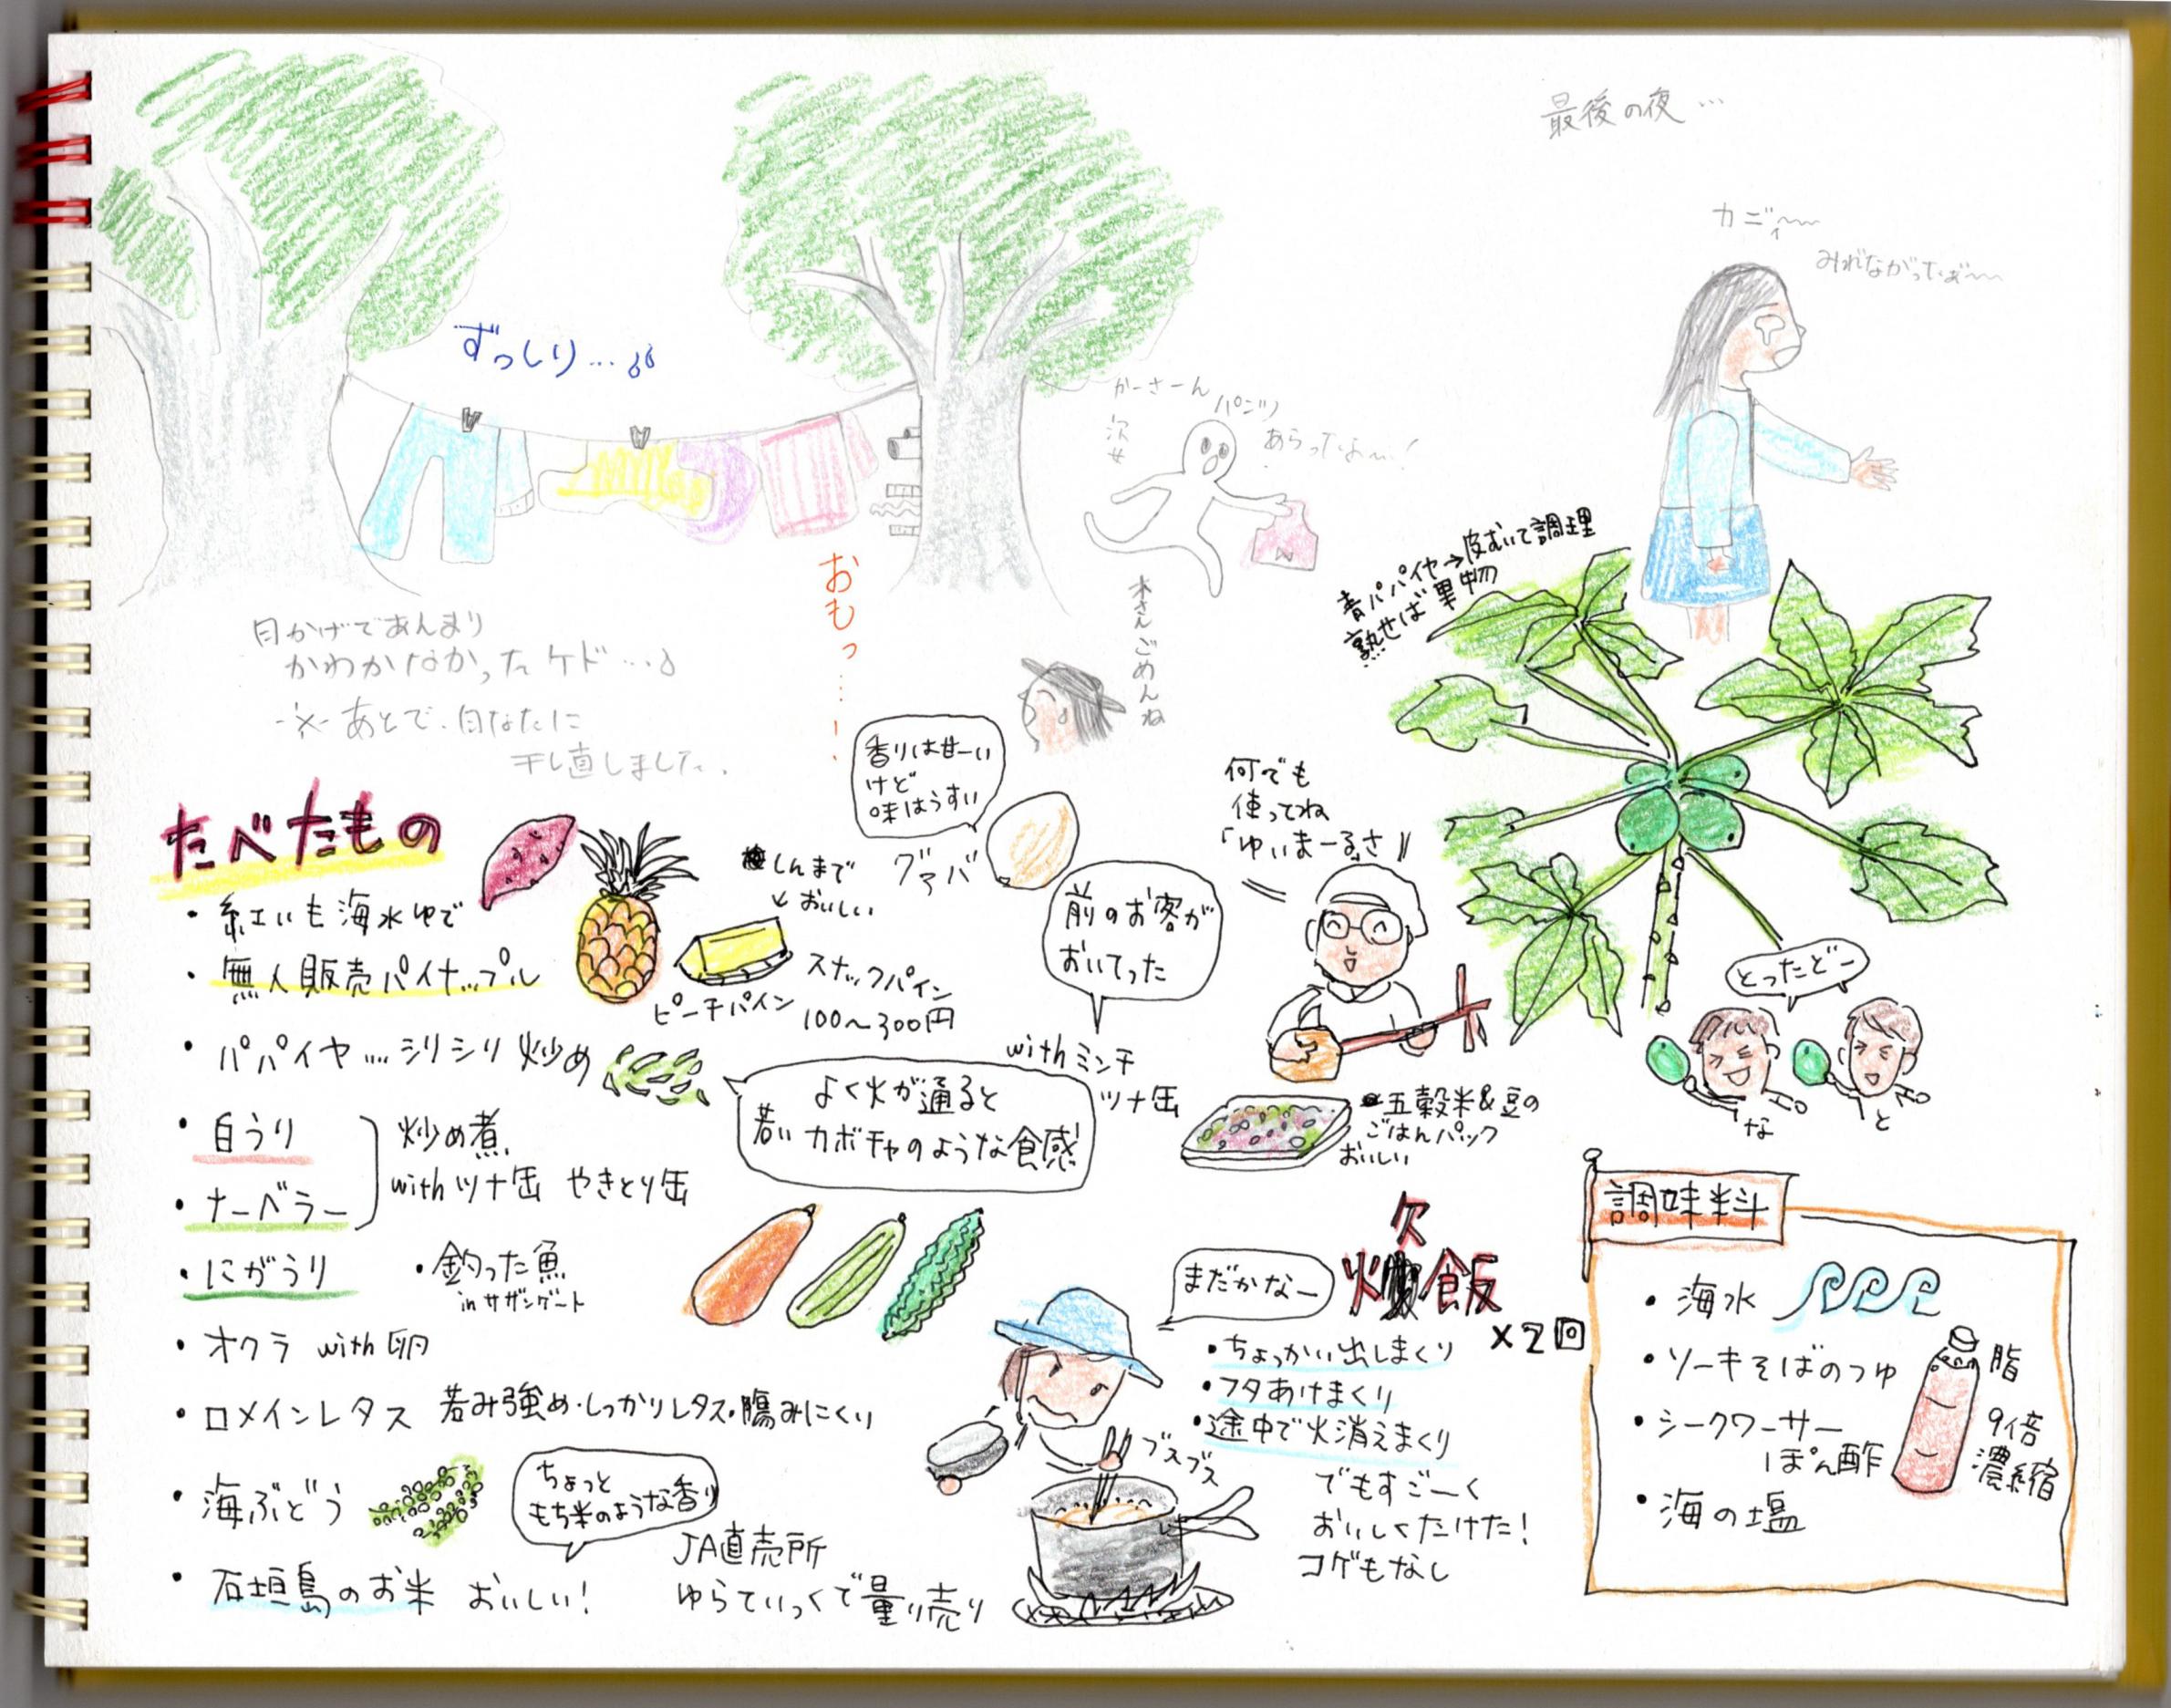 最後の夜…
カニ〜〜
みれながったぁ〜〜
ずっしり…
かーさーん
パンツ
あらったよ〜！
次女
おもっ…！
木さんごめんね
日かげであんまり
かわかなかったケド…♪
※あとで、日なたに
干し直しました。
青パパイヤ→皮むいて調理
熟せば果物
たべたもの
・紅いも海水ゆで
・無人販売パイナップル
しんまで
おいしい
ピーチパイン
スナックパイン
100〜300円
香りは甘ーい
けど
味はうすい
グァバ
何でも
使ってね
「ゆいまーるさ」
前のお客が
おいてった
とったどー
な
と
・パパイヤ…シリシリ炒め
withミンチ
ツナ缶
よく火が通ると
若いカボチャのような食感
五穀米&豆の
ごはんパック
おいしい
・白うり
・ナーベラー
炒め煮
withツナ缶 やきとり缶
・にがうり
・釣った魚
inサザンゲート
・オクラ with卵
・ロメインレタス 苦み強め・しっかりレタス・傷みにくい
・海ぶどう
ちょっと
もち米のような香り
・石垣島のお米 おいしい！
JA直売所
ゆらてぃっくで量り売り
まだかなー
炊飯
×2回
・ちょっかい出しまくり
・フタあけまくり
・途中で火消えまくり
ブスブス
でもすごーく
おいしくたけた！
コゲもなし
調味料
・海水
・ソーキそばのつゆ
・シークワーサー
ぽん酢
・海の塩
脂
9倍
濃縮